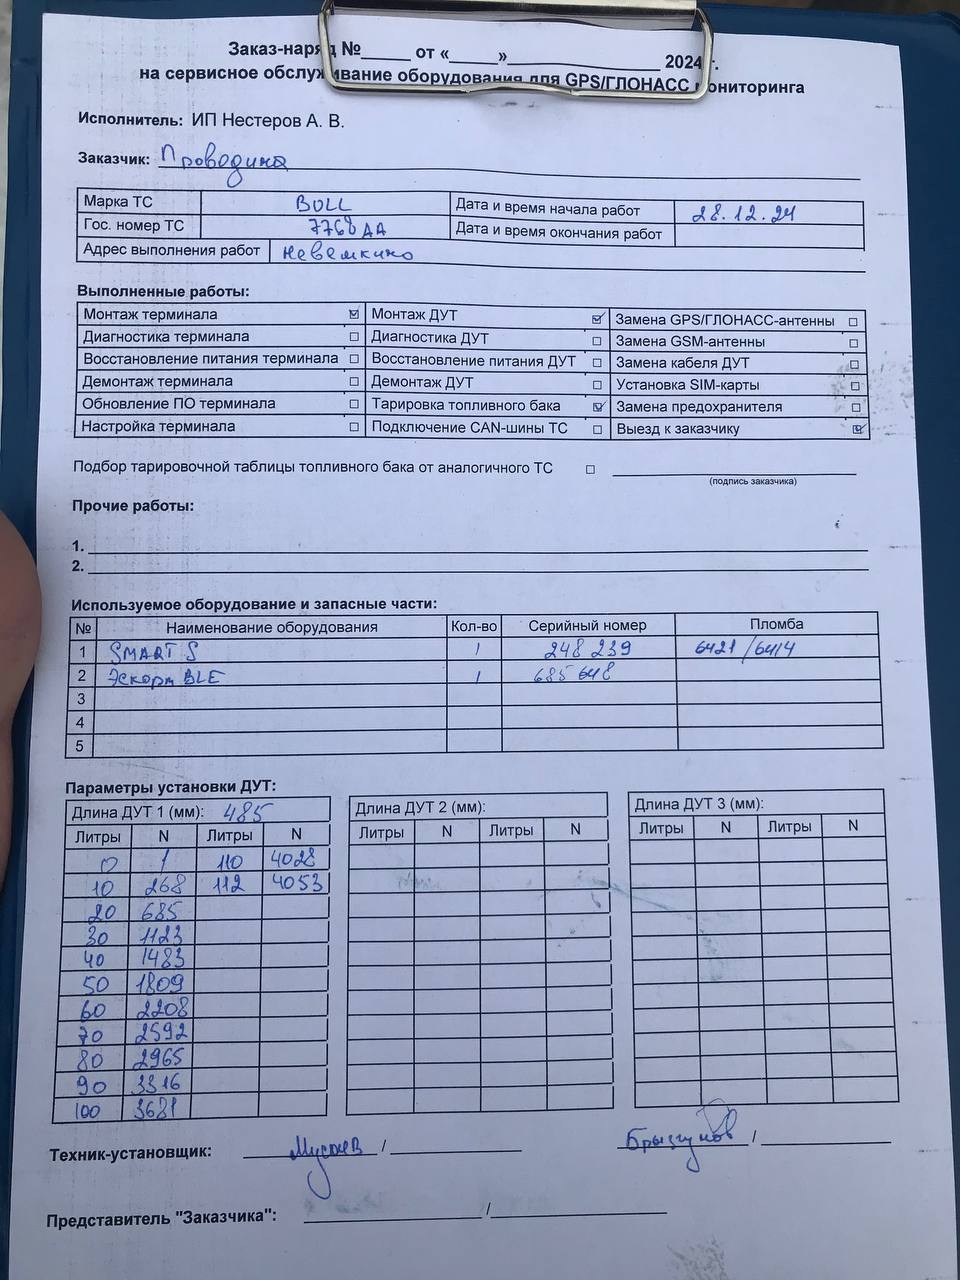 Заказ-наряд №_____ от «_____»________________ 2024 г.
на сервисное обслуживание оборудования для GPS/ГЛОНАСС мониторинга
Исполнитель: ИП Нестеров А. В.
Заказчик: Проводина
Марка ТС BULL Дата и время начала работ 28.12.24
Гос. номер ТС 7768 АА Дата и время окончания работ
Адрес выполнения работ Невежкино
Выполненные работы:
Монтаж терминала ☑ Монтаж ДУТ ☑ Замена GPS/ГЛОНАСС-антенны ☐
Диагностика терминала ☐ Диагностика ДУТ ☐ Замена GSM-антенны ☐
Восстановление питания терминала ☐ Восстановление питания ДУТ ☐ Замена кабеля ДУТ ☐
Демонтаж терминала ☐ Демонтаж ДУТ ☐ Установка SIM-карты ☐
Обновление ПО терминала ☐ Тарировка топливного бака ☑ Замена предохранителя ☐
Настройка терминала ☐ Подключение CAN-шины ТС ☐ Выезд к заказчику ☑
Подбор тарировочной таблицы топливного бака от аналогичного ТС ☐
(подпись заказчика)
Прочие работы:
1.
2.
Используемое оборудование и запасные части:
№ Наименование оборудования Кол-во Серийный номер Пломба
1 SMART S 1 248 239 6421/6414
2 Эскорт BLE 1 685 648
3
4
5
Параметры установки ДУТ:
Длина ДУТ 1 (мм): 485 Длина ДУТ 2 (мм): Длина ДУТ 3 (мм):
Литры N Литры N Литры N Литры N Литры N Литры N
0 1 110 4028
10 268 112 4053
20 685
30 1123
40 1483
50 1809
60 2208
70 2592
80 2965
90 3316
100 3681
Техник-установщик: Мусаев / Брызгунов /
Представитель "Заказчика": /